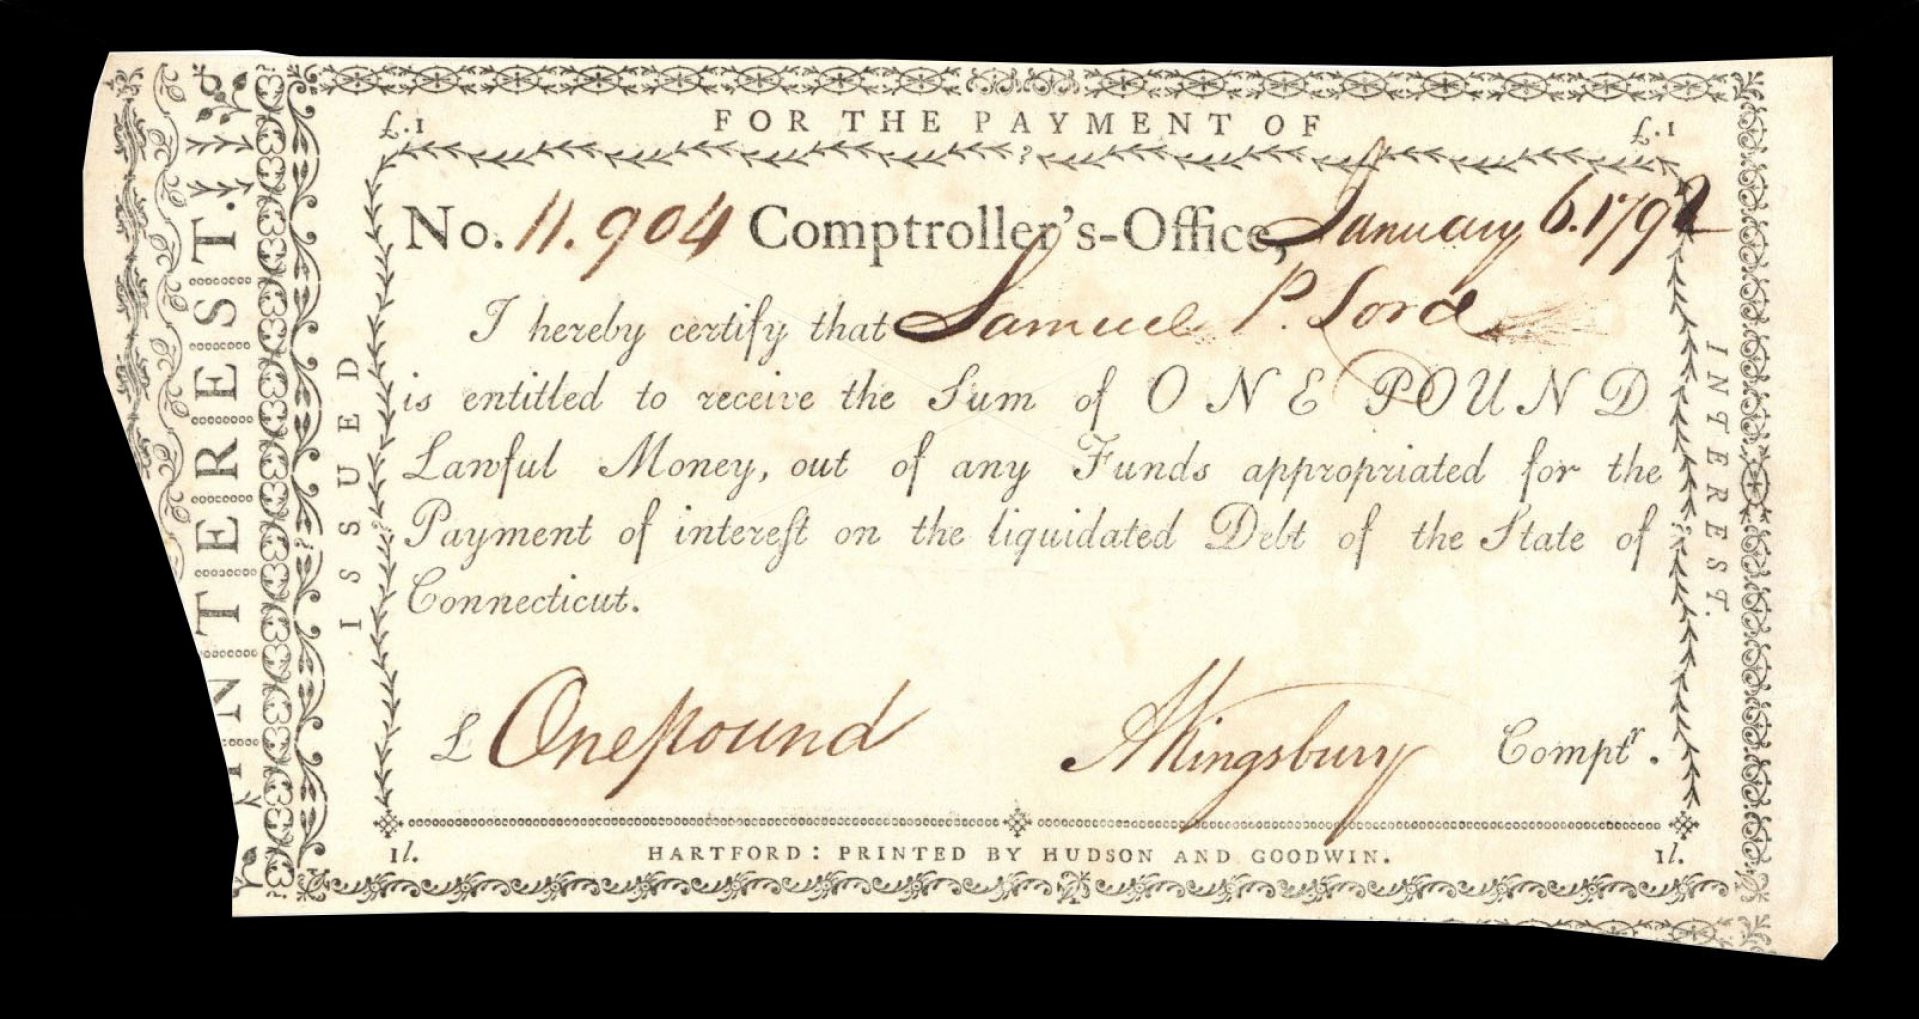 FOR THE PAYMENT OF
£.1
£.1
No. 11.904 Comptroller's-Office, January 6. 1792
I hereby certify that Samuel P. Lord
is entitled to receive the Sum of ONE POUND
Lawful Money, out of any Funds appropriated for the
Payment of intereſt on the liquidated Debt of the State of
Connecticut.
£ One pound AKingsbury Comptr.
1l.
HARTFORD: PRINTED BY HUDSON AND GOODWIN.
1l.
ISSUED
INTEREST.
INTEREST.